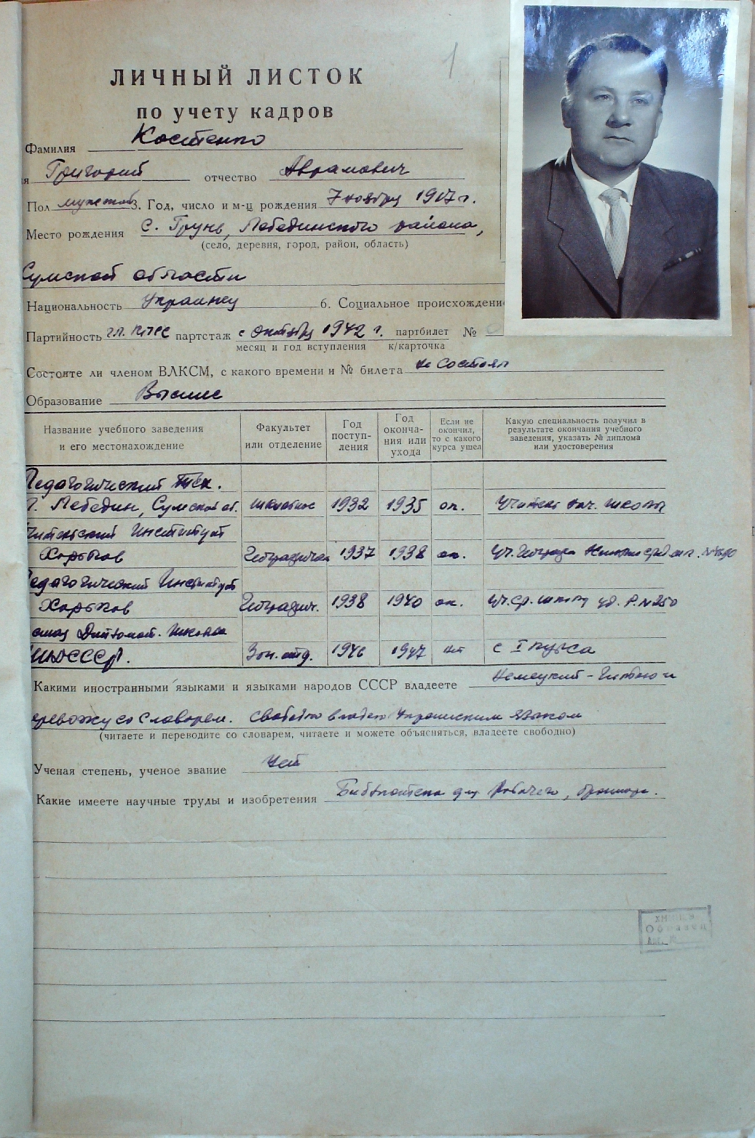 1
ЛИЧНЫЙ ЛИСТОК
по учету кадров
Фамилия Костенко
я Григорий отчество Аврамович
Пол мужской 3. Год, число и м-ц рождения 7 ноября 1917 г.
Место рождения С. Грунь, Лебединского района,
(село, деревня, город, район, область)
Сумской области
Национальность Украинец 6. Социальное происхождение
Партийность чл. КПСС партстаж с октября 1942 г. партбилет №
месяц и год вступления к/карточка
Состоите ли членом ВЛКСМ, с какого времени и № билета не состоял
Образование Высшее
Название учебного заведения и его местонахождение
Факультет или отделение
Год поступ-ления
Год оконча-ния или ухода
Если не окончил, то с какого курса ушел
Какую специальность получил в результате окончания учебного заведения, указать № диплома или удостоверения
Педагогический тех.
г. Лебедин, Сумской об. школьное 1932 1935 ок. Учитель нач. школы
Учительский Институт
Харьков 1937 1938 ок.
Педагогический Институт
Харьков Географич. 1938 1940 ок. Уч. ср. школы
Дипломат. школа
1946 1947 нет с I курса
Какими иностранными языками и языками народов СССР владеете Немецкий - Читаю и
перевожу со словарем. Свободно владею Украинским языком
(читаете и переводите со словарем, читаете и можете объясняться, владеете свободно)
Ученая степень, ученое звание Нет
Какие имеете научные труды и изобретения Библиотека для рабочего, брошюра.